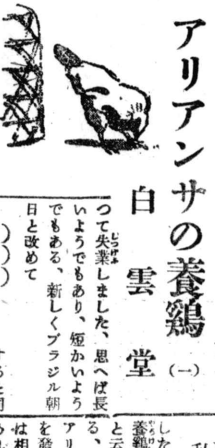 アリアンサの養鷄(一)
白雲堂
つて失業しました、思へば長
いようでもあり、短かいよう
でもある、新しくブラジル朝
日と改めて